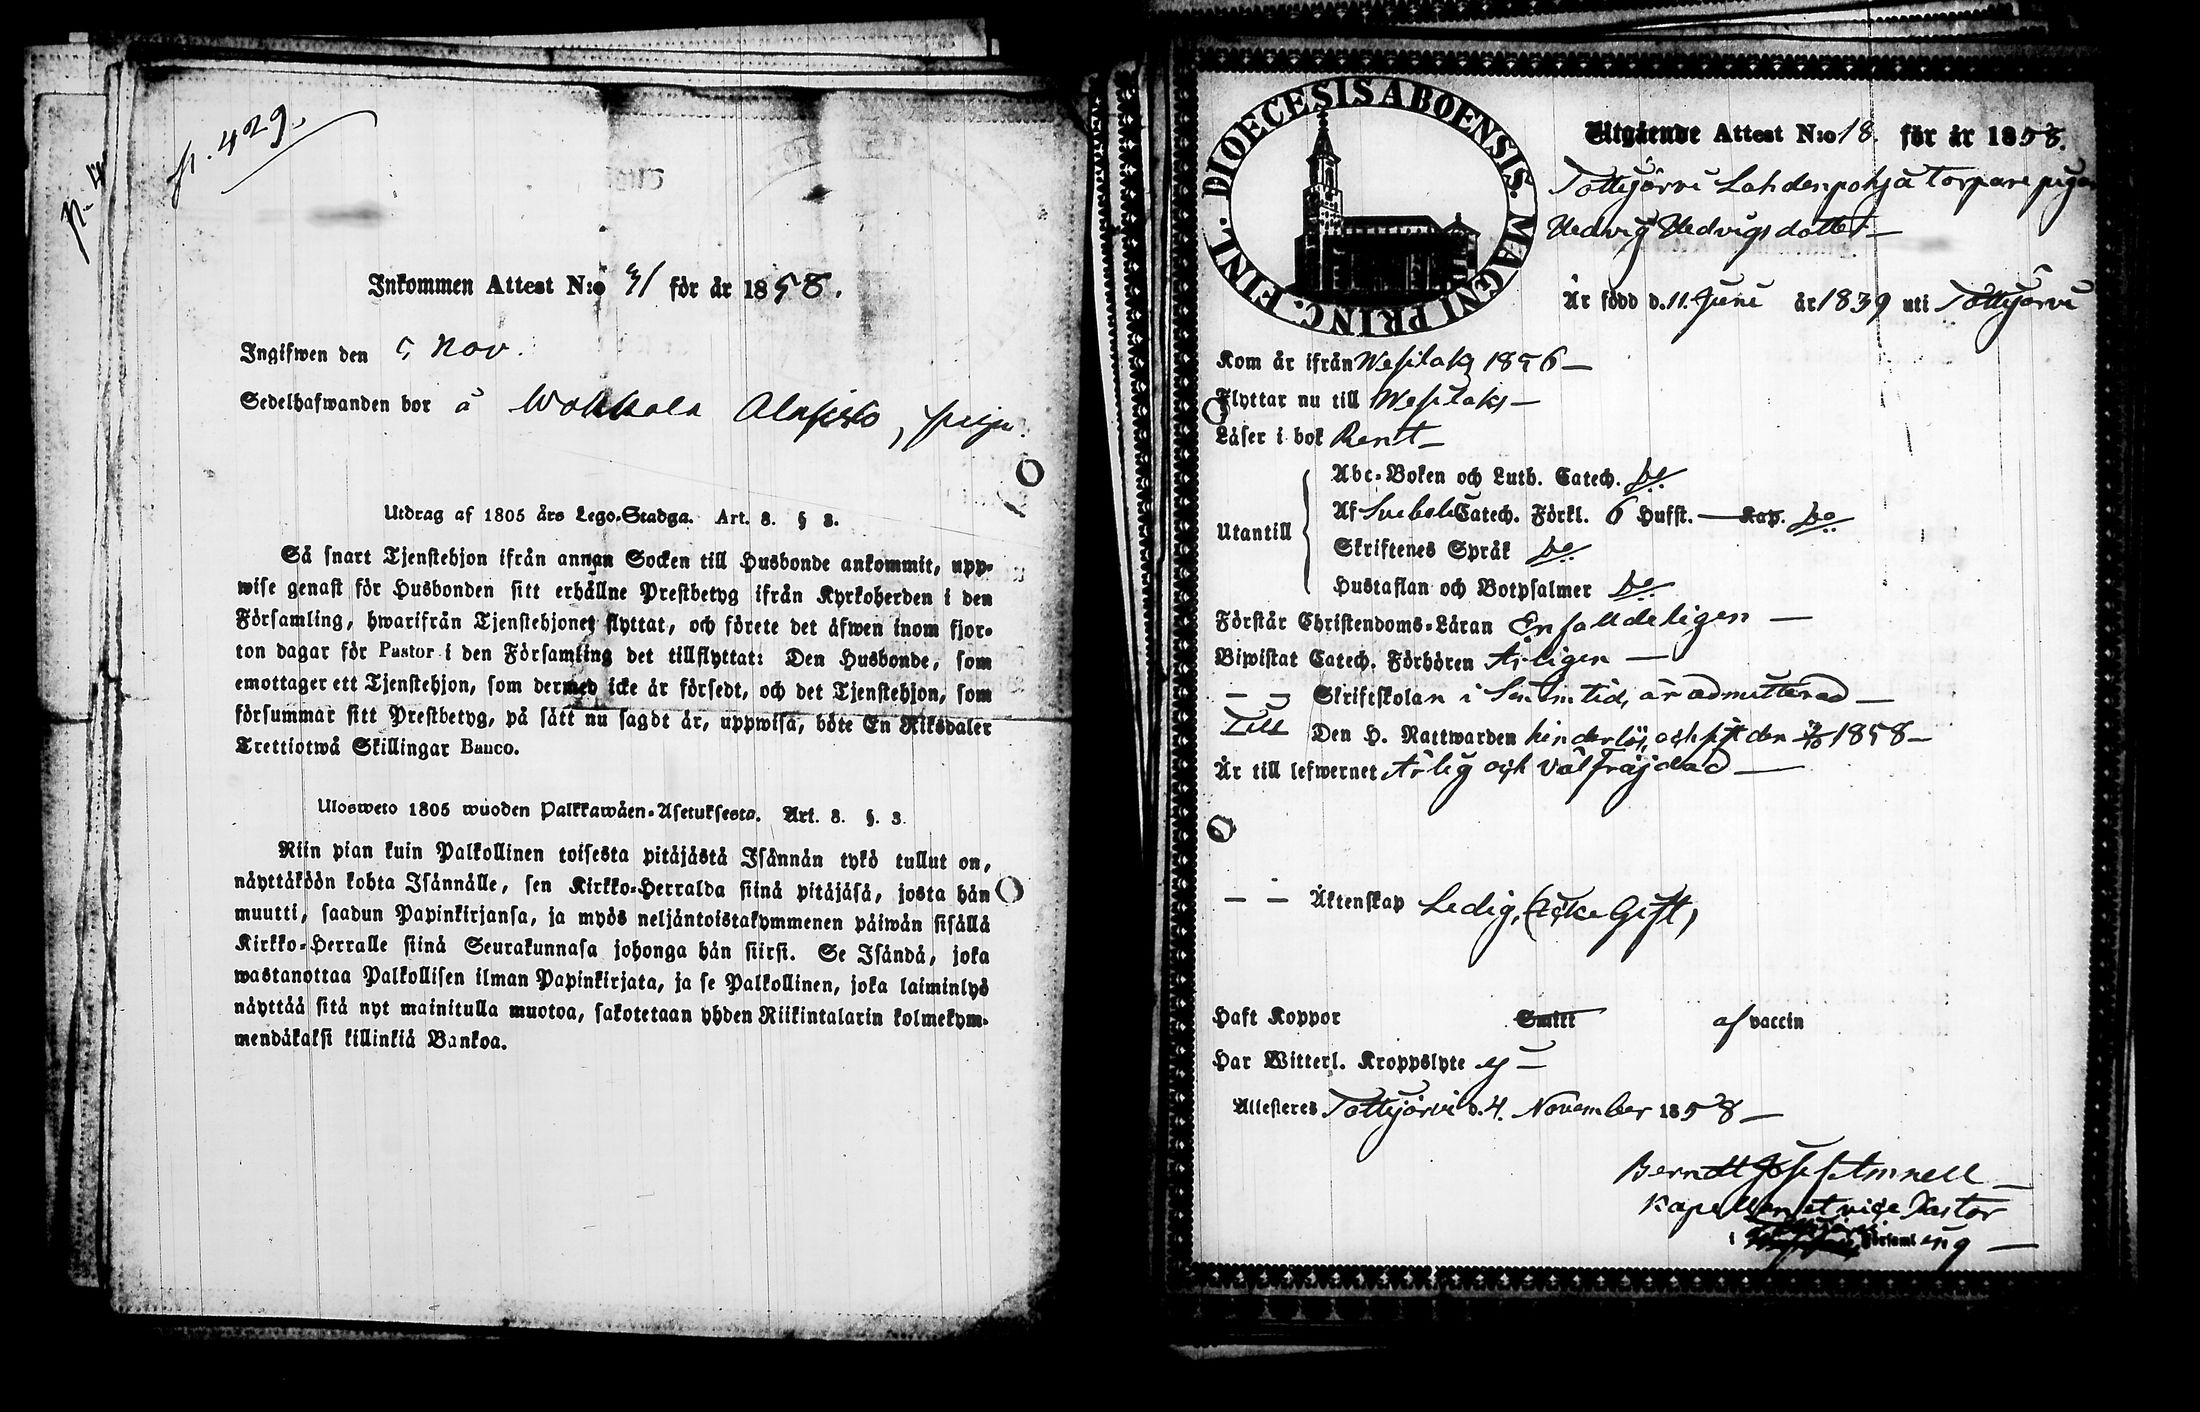 p. 429.
Inkommen Attest N:o 31 för år 1858.
Ingifwen den 5 Nov.
Sedelhafwanden bor å Wakkala Alapisto, piga.
Utdrag af 1805 års Lego-Stadga. Art. 8. § 3.
Så snart Tjenstehjon ifrån annan Socken till Husbonde ankommit, upp-
wise genast för Husbonden sitt erhållne Prestbetyg ifrån Kyrkoherden i den
Församling, hwarifrån Tjenstehjonet flyttat, och förete det äfwen inom fjor-
ton dagar för Pastor i den Församling det tillflyttat: Den Husbonde, som
emottager ett Tjenstehjon, som dermed icke är försedt, och det Tjenstehjon, som
försummar sitt Prestbetyg, på sätt nu sagdt är, uppwisa, böte En Riksdaler
Trettiotwå Skillingar Banco.
Ulosweto 1805 wuoden Palkkawäen-Asetuksesta. Art. 8. §. 3.
Niin pian kuin Palkollinen toisesta pitäjästä Isännän tykö tullut on,
näyttäköön kohta Isännälle, sen Kirkko-Herralda siinä pitäjäsä, josta hän
muutti, saadun Papinkirjansa, ja myös neljäntoistakymmenen päiwän sisällä
Kirkko-Herralle siinä Seurakunnasa johonga hän siirsi. Se Isändä, joka
wastanottaa Palkollisen ilman Papinkirjata, ja se Palkollinen, joka laiminlyö
näyttää sitä nyt mainitulla muotoa, sakotetaan yhden Riikintalarin kolmekym-
mendäkaksi killinkiä Bankoa.
DIOECESIS ABOENSIS. MAGNI PRINC. FINL.
Utgående Attest N:o 18. för år 1858.
Tottijärvi Lahdenpohja Torpare pigan
Hedvig Hedvigsdotter
Är född d. 11. Juni år 1839 uti Tottijärvi
Kom år ifrån Wesilaks 1856
Flyttar nu till Wesilaks
Läser i bok Rent
Utantill
Abc-Boken och Luth. Catech. do
Af Svebeli Catech. Förkl. 6 Hufst. Kap. do
Skriftenes Språk do
Hustaflan och Botpsalmer do
Förstår Christendoms-Läran Enfalldeligen
Biwistat Catech. Förhören Årligen
— — Skriftskolan i sin tid, är admitterad
Till Den H. Nattwarden hinderlös, och sist den 1858
Är till lefwernet Ärlig och välfräjdad
— — Äktenskap Ledig, (icke Gift)
Haft Koppor Smitt af vaccin
Har Witterl. Kroppslyte ej
Attesteres Tottijärvi d. 4. November 1858
Berndt Josef Amnell
Kapellan et vice Pastor
i Tottijärvi Församling